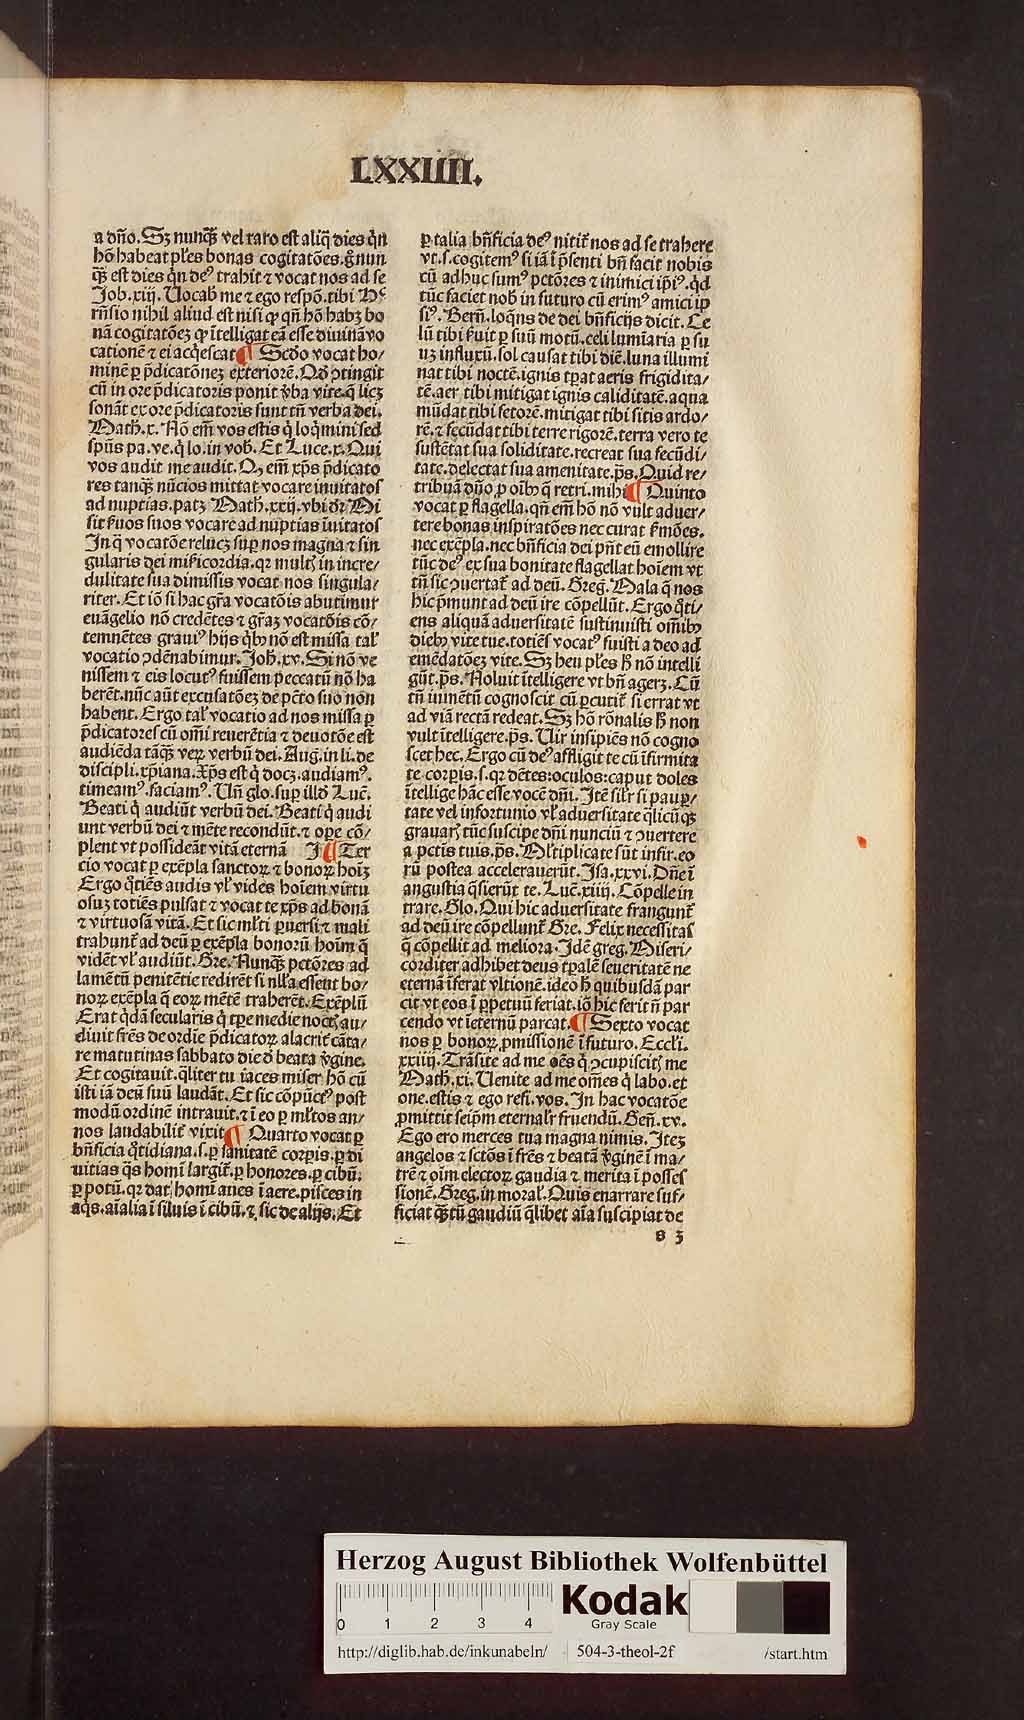 LXXIIII.
a dño. Sꝫ nunqͣꝫ vel raro est aliq̄ dies q̄n
hō habeat pl̄es bonas cogitatōes. g̊ nun
qͣꝫ est dies q̄n deꝰ trahit ⁊ vocat nos ad se
Job. xiij. Uocab̄ me ⁊ ego respō. tibi Hᶜ
rn̄sio nihil aliud est nisi ꝙ qn̄ hō habꝫ bo
nā cogitatōeꝫ ꝙ ītelligat eā esse diuinā vo
cationē ⁊ ei acq̇escat ¶ Scd̄o vocat ho/
minē ꝑ p̄dicatōneꝫ exteriorē. Qd̄ ꝯtingit
cū in ore p̄dicatoris ponit v̄ba vite. q̄ licꝫ
sonāt ex ore p̄dicatoris sunt tn̄ verba dei.
Math̄. x. Nō em̄ vos estis q̇ loq̇mini sed
spūs pa. ve. q̇ lo. in vob̄. Et Luce. x. Qui
vos audit me audit. Qꝫ em̄ xp̄s p̄dicato
res tanqͣꝫ nūcios mittat vocare inuitatos
ad nuptias. patꝫ Math̄. xxij. vbi dr̄ Mi
sit ẜuos suos vocare ad nuptias īuitatos
In q̄ vocatōe relucꝫ suꝑ nos magna ⁊ sin
gularis dei mīẜicordia. qr multꝭ in incre/
dulitate sua dimissis vocat nos singula/
riter. Et iō si hac gr̄a vocatōis abutimur
euāgelio nō credētes ⁊ gr̄aꝫ vocatōis cō/
temnētes grauiꝰ hijs qͥbꝫ nō est missa tal̄
vocatio ꝯdēnabimur. Joh̄. xv. Si nō ve
nissem ⁊ eis locutꝰ fuissem peccatū nō ha
berēt. nūc aūt excusatōeꝫ de pctō suo non
habent. Ergo tal̄ vocatio ad nos missa ꝑ
p̄dicatores cū om̄i reuerētia ⁊ deuotōe est
audiēda tāqͣꝫ veꝝ verbū dei. Auḡ. in li. de
discipli. xp̄iana. Xp̄s est q̇ docꝫ. audiamꝰ.
timeamꝰ. faciamꝰ. Un̄ glo. suꝑ illd̄ Luc̄.
Beati q̇ audiūt verbū dei. Beati q̇ audi
unt verbū dei ⁊ mēte recondūt. ⁊ oꝑe cō/
plent vt possideāt vitā eternā ¶ Ter
cio vocat ꝑ exēpla sanctoꝝ ⁊ bonoꝝ hoīꝫ
Ergo q̊tiēs audis vl̓ vides hoīem virtu
osuꝫ totiēs pulsat ⁊ vocat te xp̄s ad bonā
⁊ virtuosā vitā. Et sic ml̓ti ꝑuersi ⁊ mali
trahunt̄ ad deū ꝑ exēpla bonorū hoīm q̄
vidēt vl̓ audiūt. Gre. Nunqͣꝫ pctōres ad
lamētū penitētie redirēt si nll̓a essent bo/
noꝝ exēpla q̄ eoꝝ mētē traherēt. Exēplū
Erat q̇dā secularis q̇ tꝑe medie noctꝭ au/
diuit fr̄es de ordīe p̄dicatoꝝ alacrit̄ cāta/
re matutinas sabbato die d̄ beata v̄gine.
Et cogitauit. q̄liter tu iaces miser hō cū
isti iā deū suū laudāt. Et sic cōpūctꝰ post
modū ordinē intrauit. ⁊ ī eo ꝑ ml̓tos an/
nos laudabilit̄ vixit ¶ Quarto vocat ꝑ
bn̄ficia q̊tidiana. s. ꝑ sanitatē corꝑis. ꝑ di
uitias q̄s homī largit̄. ꝑ honores. ꝑ cibū.
ꝑ potū. qr dat homī aues ī aere. pisces in
aq̇s. aīalia ī siluis ī cibū. ⁊ sic de alijs. Et
ꝑ talia bn̄ficia deꝰ nitit̄ nos ad se trahere
vt. s. cogitemꝰ si iā ī p̄senti bn̄ facit nobis
cū adhuc sumꝰ pctōres ⁊ inimici ip̄iꝰ. q̇d
tūc faciet nob̄ in futuro cū erimꝰ amici ip̄
siꝰ. Bern̄. loq̄ns de dei bn̄ficijs dicit. Ce
lū tibi ẜuit ꝑ suū motū. celi lumiaria ꝑ su
uꝫ influxū. sol causat tibi diē. luna illumi
nat tibi noctē. ignis tꝑat aeris frigidita/
tē. aer tibi mitigat ignis caliditatē. aqua
mūdat tibi fetorē. mitigat tibi sitis ardo/
rē. ⁊ fecūdat tibi terre rigorē. terra vero te
sustētat sua soliditate. recreat sua fecūdi/
tate. delectat sua amenitate. p̄s. Quid re/
tribuā dn̄o ꝓ oībꝫ q̄ retri. mihi ¶ Quinto
vocat ꝑ flagella. qn̄ em̄ hō nō vult aduer/
tere bonas inspiratōes nec curat ẜmōes.
nec exēpla. nec bn̄ficia dei pn̄t eū emollire
tūc deꝰ ex sua bonitate flagellat hoīem vt
tn̄ sic ꝯuertat̄ ad deū. Greg. Mala q̄ nos
hic p̄munt ad deū ire cōpellūt. Ergo q̊ti/
ens aliquā aduersitatē sustinuisti om̄ibꝫ
diebꝫ vite tue. totiēs vocatꝰ fuisti a deo ad
emēdatōeꝫ vite. Sꝫ heu pl̄es h̄ nō intelli
gūt. p̄s. Noluit ītelligere vt bn̄ agerꝫ. Cū
tn̄ iumētū cognoscit cū ꝑcutit̄ si errat vt
ad viā rectā redeat. Sꝫ hō rōnalis h̄ non
vult ītelligere. p̄s. Uir insipiēs nō cogno
scet hec. Ergo cū deꝰ affligit te cū īfirmita
te corꝑis. s. qr dētes: oculos: caput doles
ītellige hāc esse vocē dn̄i. Itē sil̓r si pauꝑ/
tate vel infortunio vl̓ aduersitate q̄licūqꝫ
grauarꝭ tūc suscipe dn̄i nunciū ⁊ ꝯuertere
a pctīs tuis. p̄s. Ml̓tiplicate sūt infir. eo
rū postea accelerauerūt. Isa. xxvi. Dn̄e ī
angustia q̄sierūt te. Luc̄. xiiij. Cōpelle in
trare. Glo. Qui hic aduersitate frangunt̄
ad deū ire cōpellunt̄. Gre. Felix necessitas
q̄ cōpellit ad meliora. Idē greg. Miseri/
corditer adhibet deus tꝑalē seueritatē ne
eternā īferat vltionē. ideo h̄ quibusdā par
cit vt eos ī ꝑpetuū feriat. iō hic ferit n̄ par
cendo vt ieternū parcat. ¶ Sexto vocat
nos ꝑ bonoꝝ ꝓmissionē ī futuro. Eccl̄i.
xxiiij. Trāsite ad me oēs q̇ ꝯcupiscitꝭ me
Math̄. xi. Uenite ad me om̄es q̇ labo. et
one. estis ⁊ ego refi. vos. In hac vocatōe
ꝓmittit seip̄m eternal̓r fruendū. Gen̄. xv.
Ego ero merces tua magna nimis. Iteꝫ
angelos ⁊ sctōs ī fr̄es ⁊ beatā v̄ginē ī ma/
trē ⁊ oīm electoꝝ gaudia ⁊ merita ī posses
sionē. Greg. in moral̓. Quis enarrare suf/
ficiat qͣꝫtū gaudiū q̄libet aīa suscipiat de
Herzog August Bibliothek Wolfenbüttel
0 1 2 3 4
Kodak
Gray Scale
http://diglib.hab.de/inkunabeln/ 504-3-theol-2f /start.htm